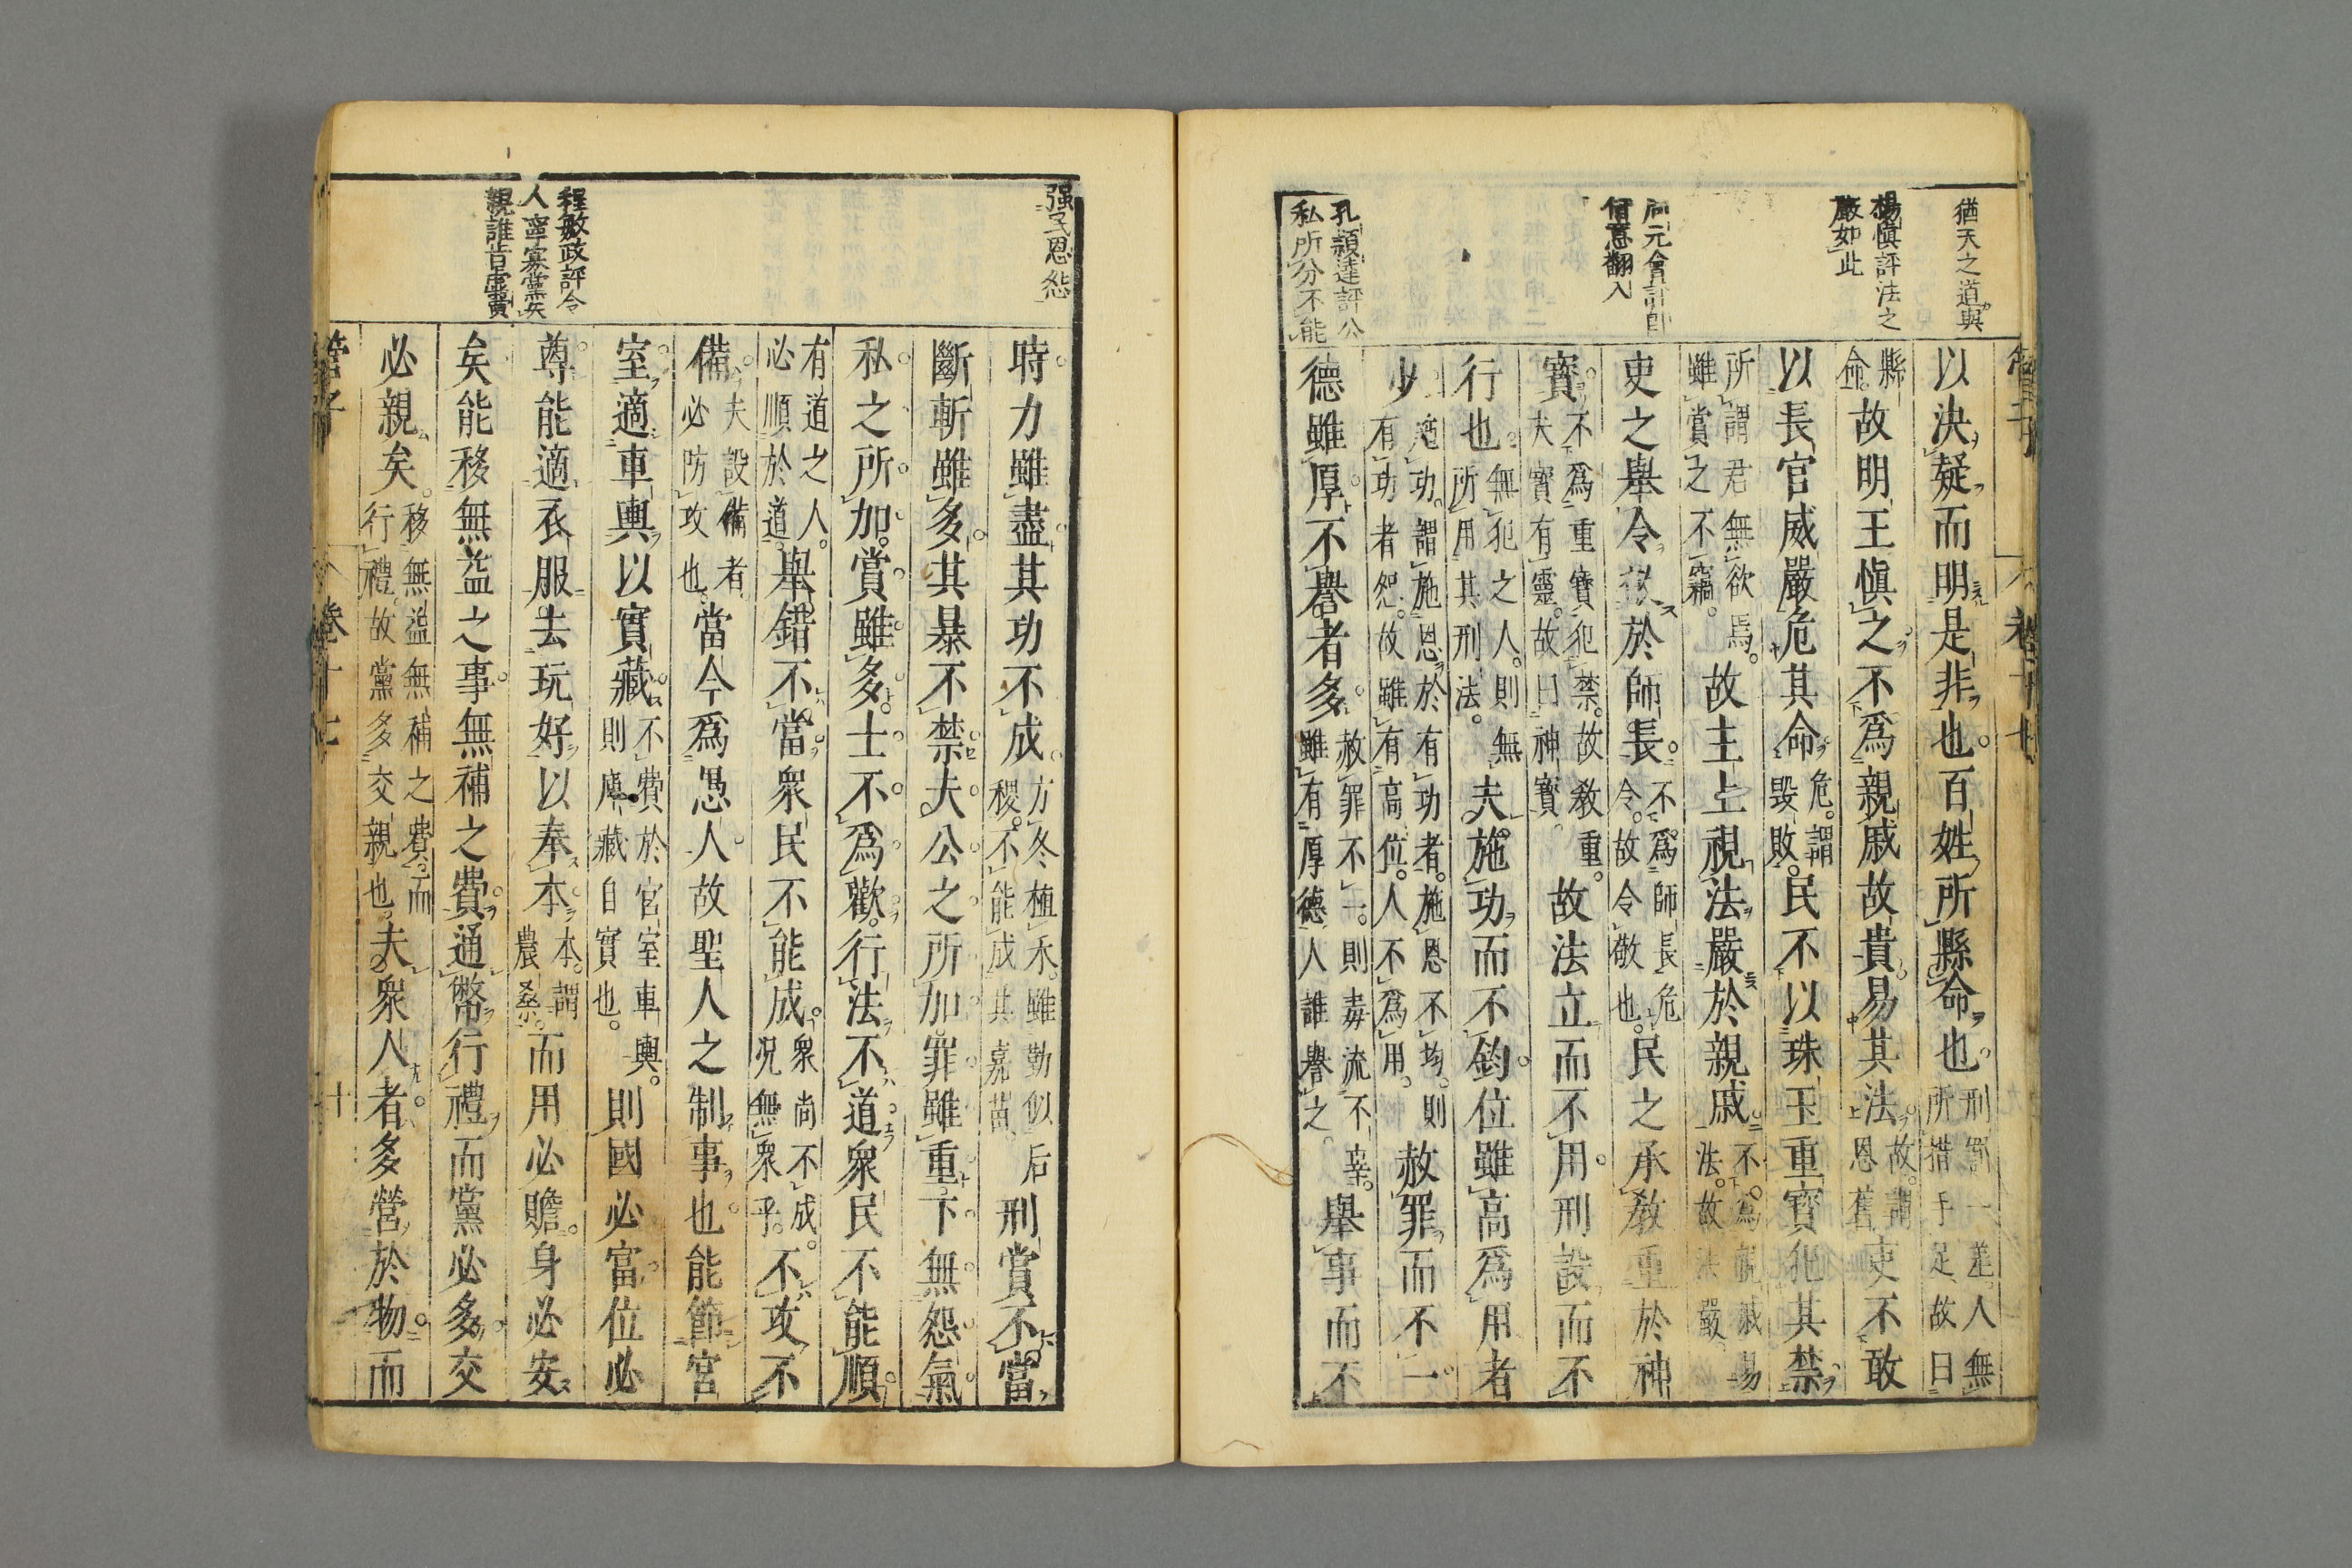 猶天之道與
楊慎評法之
嚴如此
何意翻入
孔頴達評公
私所分不能
以決疑而明是非也百姓所縣命也刑罰一差人無
所措手足故曰
縣
命故明王愼之不爲親戚故貴易其法故謂
恩舊吏不敢
以長官威嚴危其命危謂
毀敗民不以珠玉重寶犯其禁
所謂君無欲焉
雖賞之不竊故主上視法嚴於親戚不爲親戚易
法故法嚴
吏之舉令敬於師長不爲師長危
令故令敬也民之承敎重於神
寶不爲重寶犯禁故敎重
夫寶有靈故曰神寶故法立而不用刑設而不
行也無犯之人則無
所用其刑法夫施功而不鈞位雖高爲用者
少施功謂施恩於有功者施恩不均則
有功者怨故雖有高位人不爲用赦罪而不一
德雖厚不譽者多赦罪不一則毒流不辜
雖有厚德人誰譽之舉事而不
强民恩怨
程敏政評今
人寧寡黨矣
親誰肯虛費
時力雖盡其功不成方冬植禾雖勤似后
稷不能成其嘉苗刑賞不當
斷斬雖多其暴不禁夫公之所加罪雖重下無怨氣
私之所加賞雖多士不爲歡行法不道衆民不能順
有道之人
必順於道舉錯不當衆民不能成衆尚不成
況無衆乎不攻不
備夫設備者
必防攻也當今爲愚人故聖人之制事也能節宮
室適車輿以實藏不費於官室車輿
則廪藏自實也則國必富位必
尊能適衣服去玩好以奉本本謂
農桑而用必贍身必安
矣能移無益之事無補之費通幣行禮而黨必多交
必親矣移無益無補之費而
行禮故黨多交親也夫衆人者多營於物而
管子
卷十七
十